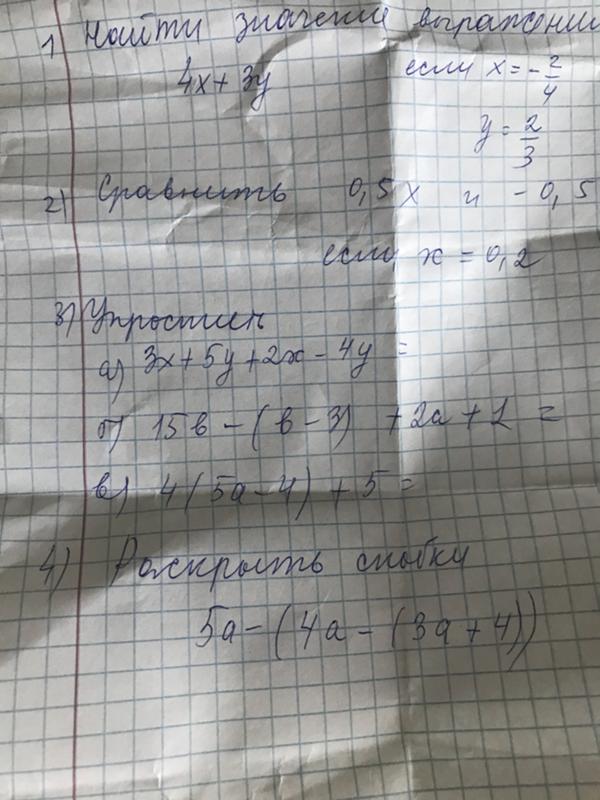 1) Найти значение выражения
4x + 3y если x = - 2/4
y = 2/3
2) Сравнить 0,5x и - 0,5
если x = 0,2
3) Упростить
а) 3x + 5y + 2x - 4y =
б) 15в - (в - 3) + 2а + 1 =
в) 4(5а - 4) + 5 =
4) Раскрыть скобку
5а - (4а - (3а + 4))